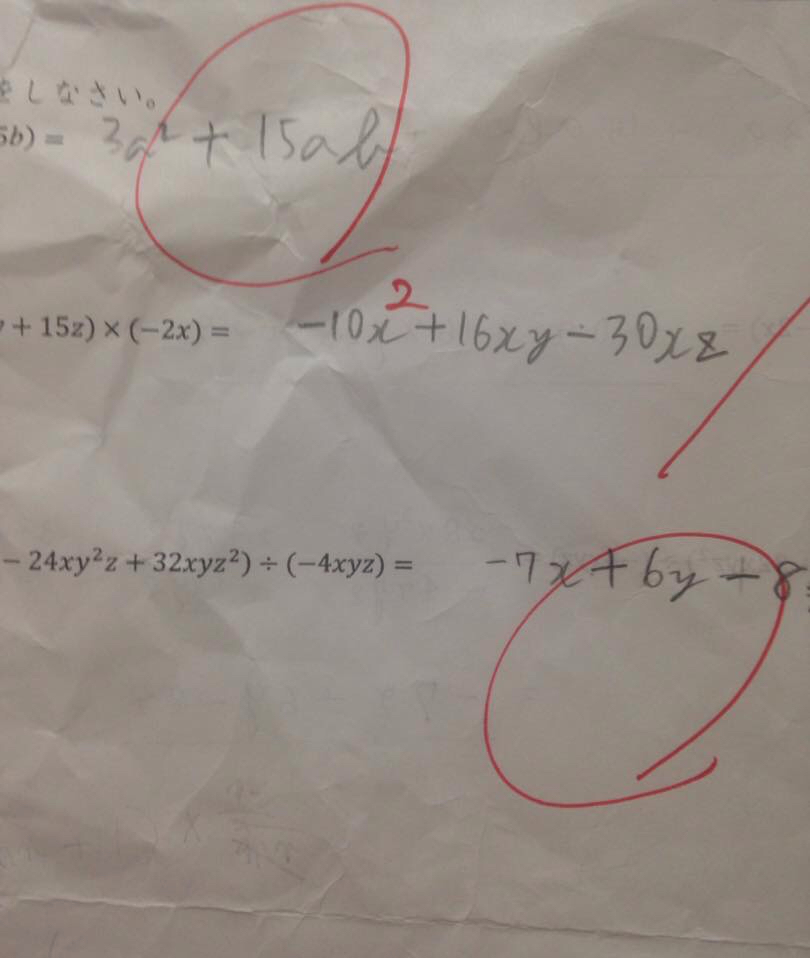 をしなさい。
5b) = 3a² + 15ab
+ 15z) × (−2x) = −10x² + 16xy − 30xz
− 24xy²z + 32xyz²) ÷ (−4xyz) = −7x + 6y − 8